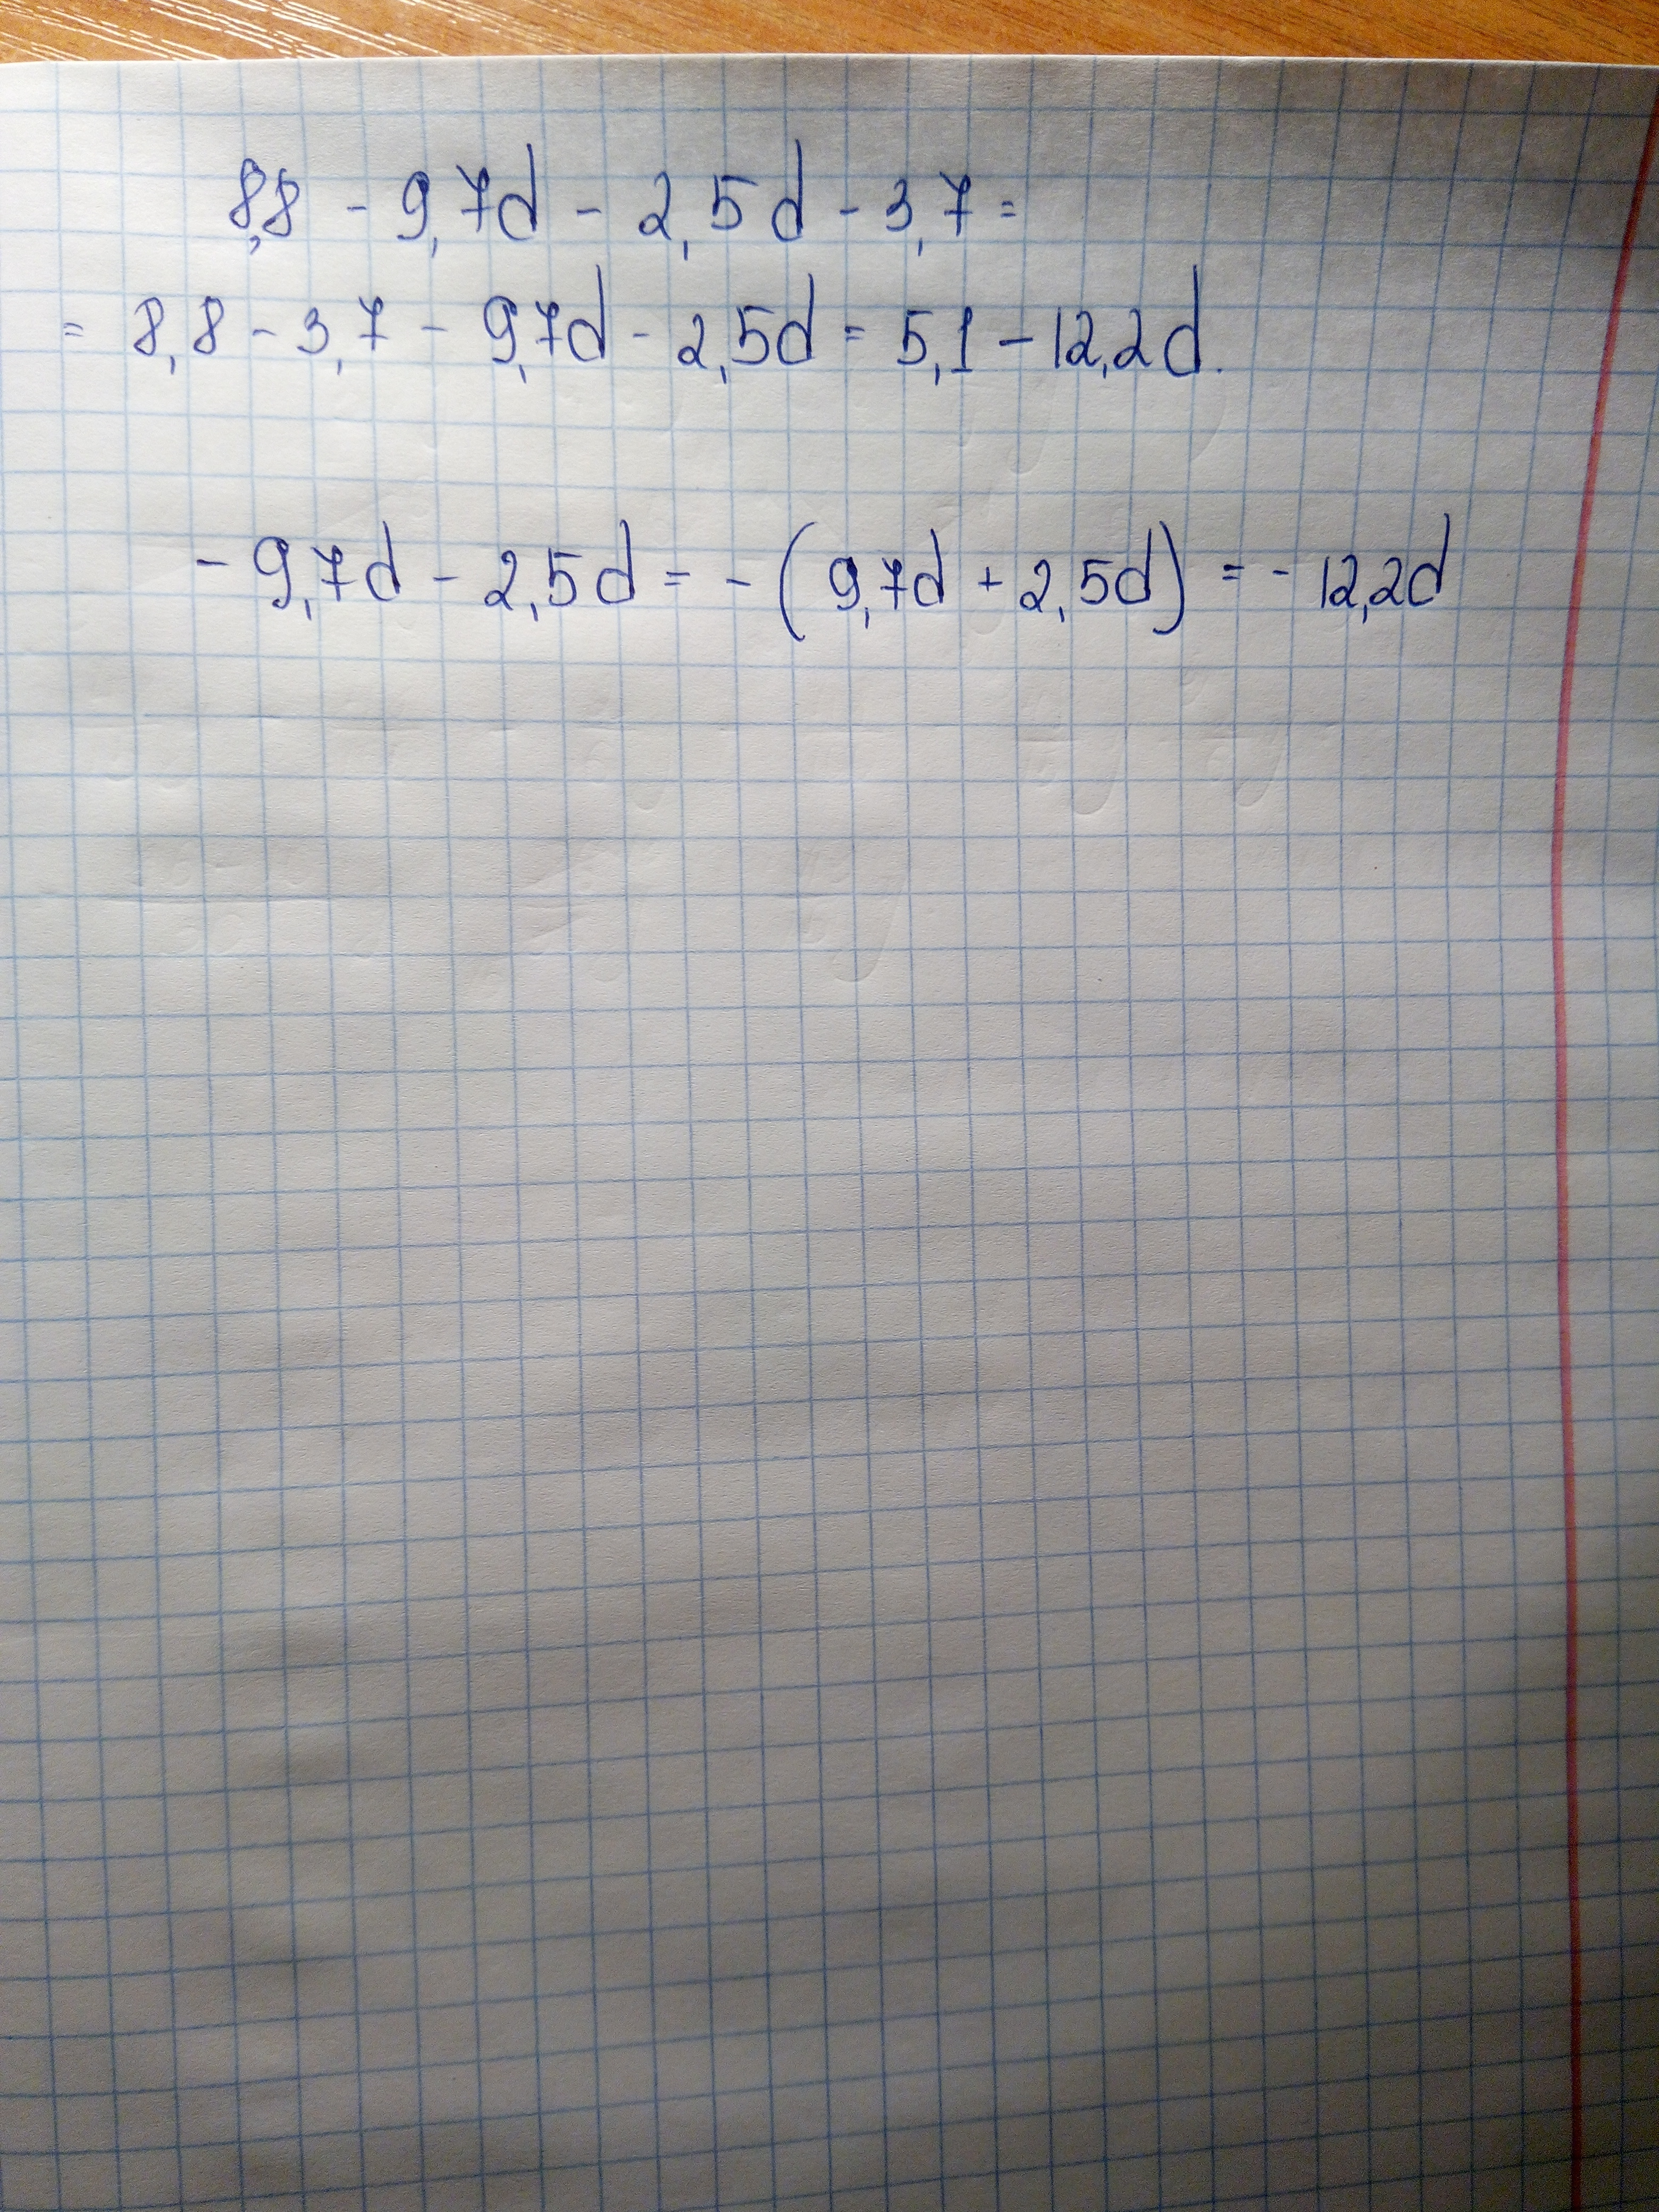 8,8 - 9,7d - 2,5d - 3,7 =
= 8,8 - 3,7 - 9,7d - 2,5d = 5,1 - 12,2d.
- 9,7d - 2,5d = - (9,7d + 2,5d) = - 12,2d